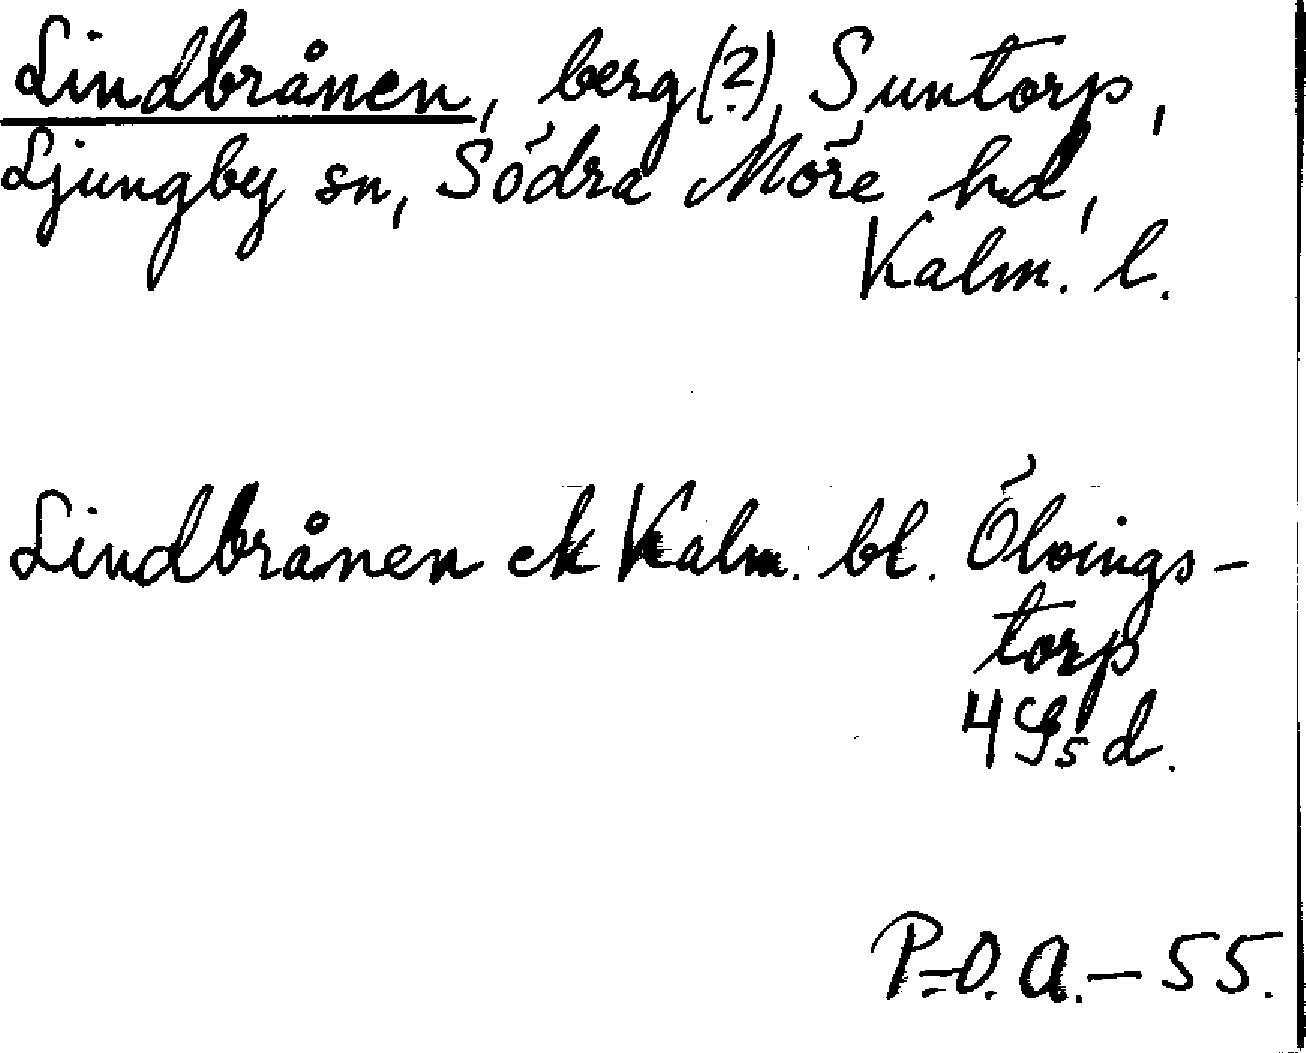 Lindbrånen, berg(?), Suntorp,
Ljungby sn, Södra Möre hd,
Kalm. l.
Lindbrånen ek Kalm. bl. Ölvings-
torp
4 Sd.
P-O. A.-55.